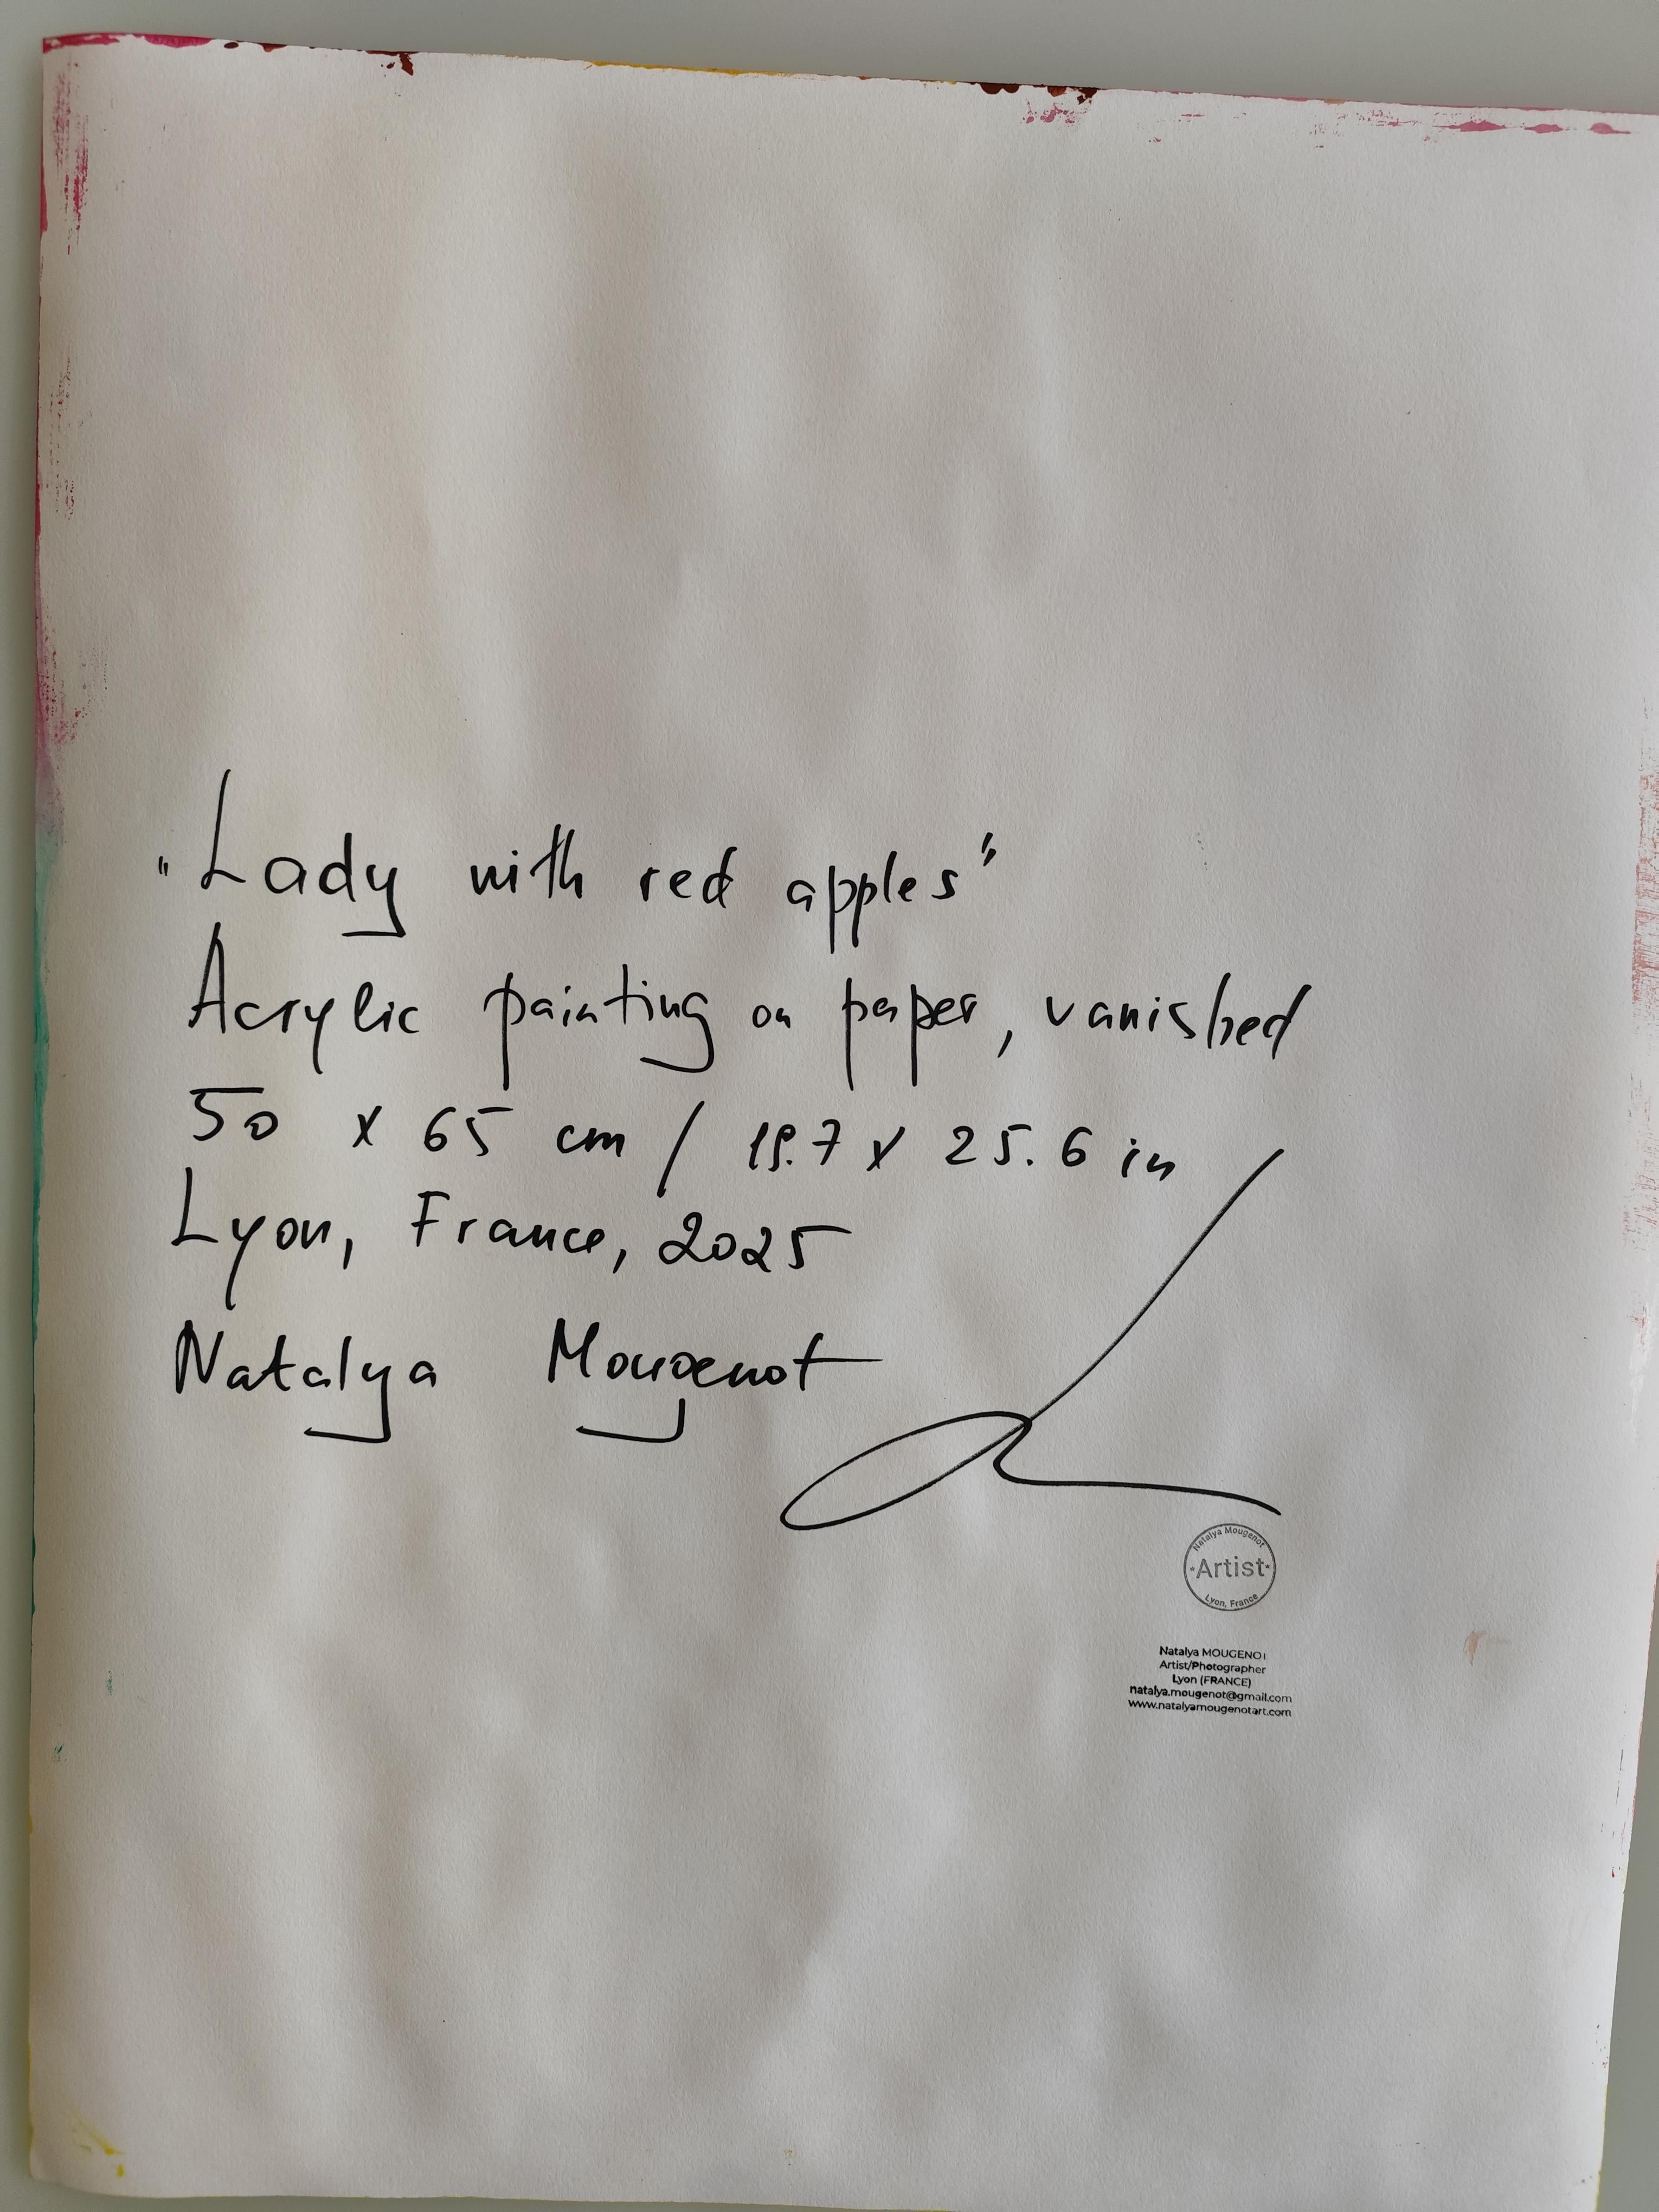 "Lady with red apples"
Acrylic painting on paper, vanished
50 x 65 cm / 19.7 x 25.6 in
Lyon, France, 2025
Natalya Mougenot
Natalya Mougenot
•Artist•
Lyon, France
Natalya MOUGENOT
Artist/Photographer
Lyon (FRANCE)
natalya.mougenot@gmail.com
www.natalyamougenotart.com